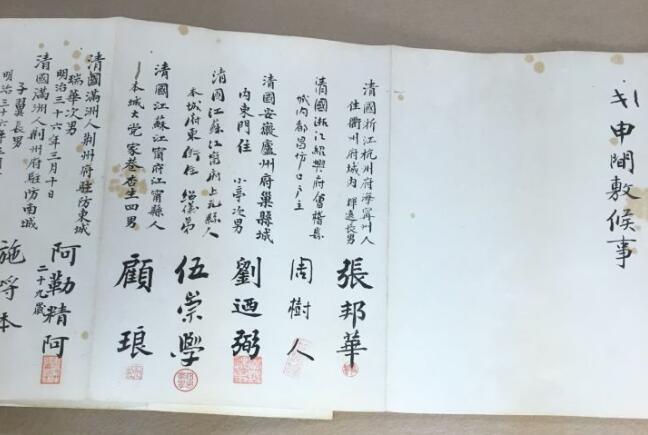 申間敷候事
清國浙江杭州府海寧州人
住衢州府城內 長男
張邦華
清國浙江紹興府會稽縣
城內都昌坊口戶主
周樹人
清國安徽廬州府巢縣城
內東門住 小亭次男
劉迺弼
清國江蘇江甯府上元縣人
本城府東街住 紹儀弟
伍崇學
清國江蘇江甯府江甯縣人
本城大党家巷杏生四男
顧琅
清國滿洲人荊州府駐防東城
瑞華次男
明治三十六年三月十日
阿勒精阿
二十九歲
清國滿洲人荊州府駐防南城
子翼長男
明治三十六年
施
本